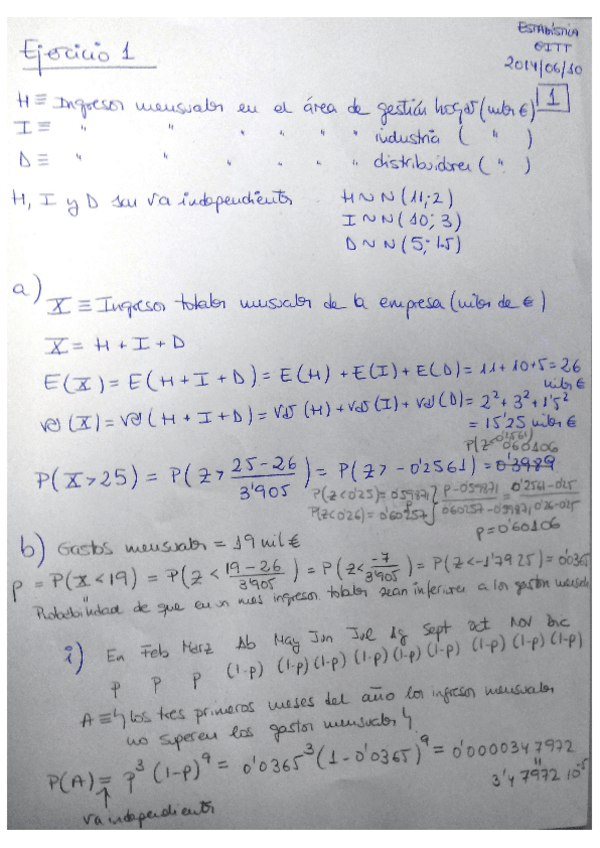 ESTADÍSTICA
GITT
2014/06/10
Ejercicio 1
1
H ≡ Ingresos mensuales en el área de gestión hogar (miles €)
I ≡ " " " " " " industria ( " )
D ≡ " " " " " distribuidores ( " )
H, I y D son va independientes H ~ N (11; 2)
I ~ N (10; 3)
D ~ N (5; 1.5)
a) X ≡ Ingresos totales mensuales de la empresa (miles de €)
X = H + I + D
E(X) = E(H + I + D) = E(H) + E(I) + E(D) = 11 + 10 + 5 = 26 miles €
Var(X) = Var(H + I + D) = Var(H) + Var(I) + Var(D) = 2² + 3² + 1'5²
= 15'25 miles €
P(Z<0'2561)
0'60106
P(X > 25) = P(Z > 25-26 / 3'905) = P(Z > -0'2561) = 0'3989
P(Z<0'25) = 0'59871 } P-0'59871 / 0'60257-0'59871 = 0'2561-0'25 / 0'26-0'25
P(Z<0'26) = 0'60257
p = 0'60106
b) Gastos mensuales = 19 mil €
p = P(X < 19) = P(Z < 19-26 / 3'905) = P(Z < -7 / 3'905) = P(Z < -1'7925) = 0'0365
Probabilidad de que en un mes ingresos totales sean inferiores a los gastos mensuales
i) En Feb Marz Ab May Jun Jul Ag Sept Oct Nov Dic
p p p (1-p) (1-p) (1-p) (1-p) (1-p) (1-p) (1-p) (1-p) (1-p)
A ≡ { los tres primeros meses del año los ingresos mensuales
no superen los gastos mensuales }
P(A) = p³ (1-p)⁹ = 0'0365³ (1 - 0'0365)⁹ = 0'0000347972
3'47972 10⁻⁵
va independientes